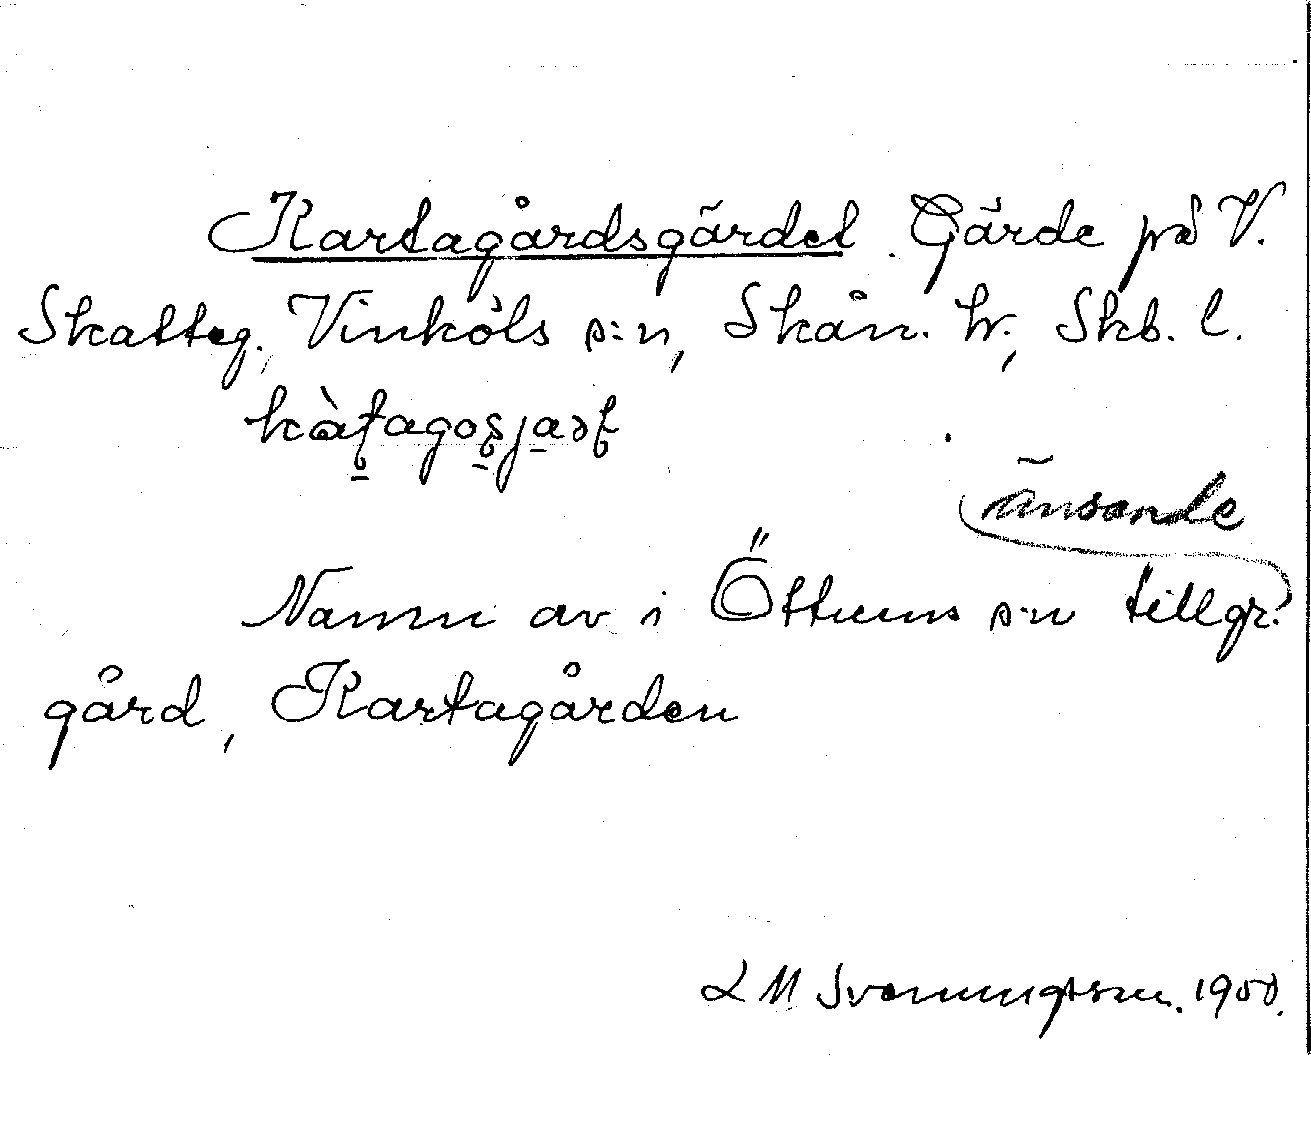 Kartagårdsgärdet. Gärde på V.
Skatteg., Vinköls s:n, Skån. hr., Skb. l.
änsande
Namn av i Öttums s:n tillgr.
gård, Kartagården
L M Svenungsson. 1950.